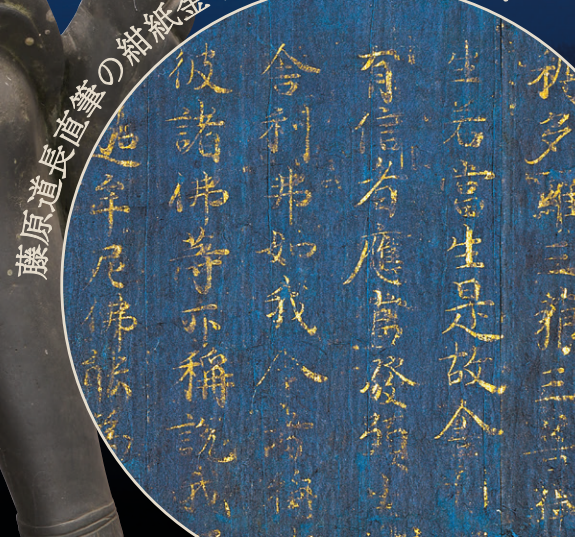 藤原道長直筆の紺紙金
多羅三藐三菩
生若當生是故舍利
有信者應當發願生
舎利弗如我今者稱
彼諸佛等亦稱說我
迦牟尼佛能為